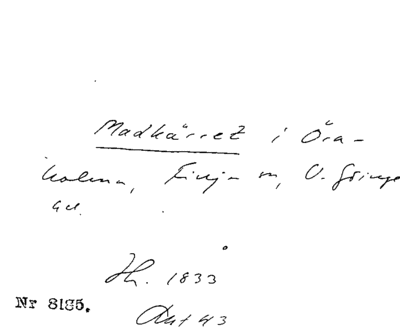 Madkärret i Öra-
holma, Finja sn, V. Göinge
hd.
Hh. 1833
Nr 8185.
Akt 43